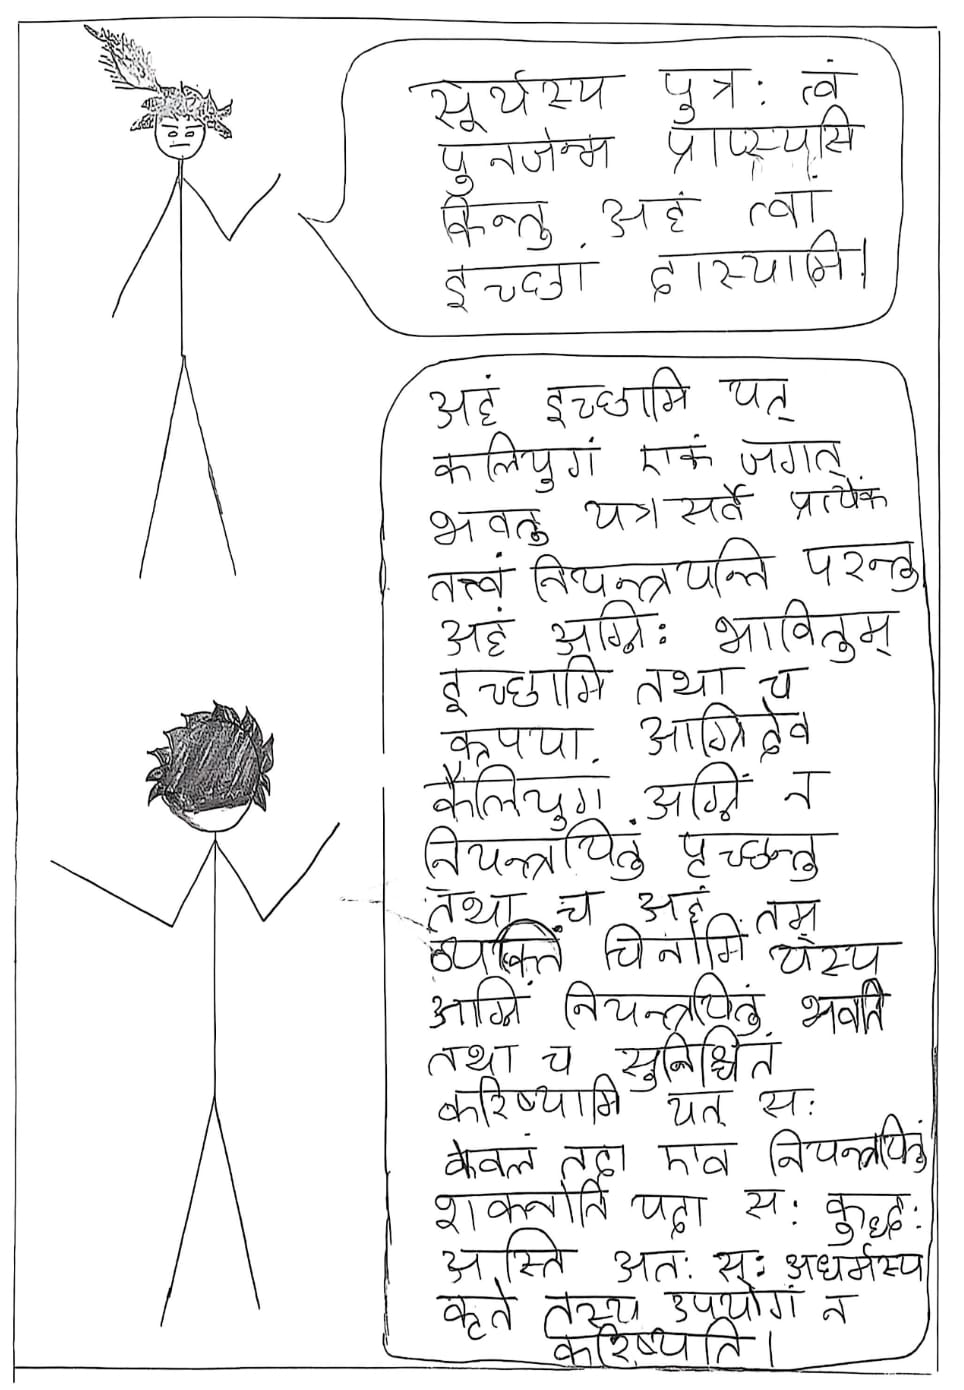 सूर्यस्य पुत्रः त्वं
पुनर्जन्म प्राप्स्यसि
किन्तु अहं त्वां
इच्छां दास्यामि।
अहं इच्छामि यत्
कलियुगं एकं जगत्
भवतु यत्र सर्वे प्रत्येकं
तत्त्वं नियन्त्रयन्ति परन्तु
अहं अग्निः भावितुम्
इच्छामि तथा च
कृपया अग्निदेव
कलियुगं अग्निं न
नियन्त्रयितुं पृच्छन्तु
तथा च अहं तम्
व्यक्तिं चिनोमि यस्य
अग्निं नियन्त्रयितुं भवति
तथा च सुनिश्चितं
करिष्यामि यत् सः
केवलं तदा एव नियन्त्रयितुं
शक्नोति यदा सः क्रुद्धः
अस्ति अतः सः अधर्मस्य
कृते तस्य उपयोगं न
करिष्यति।